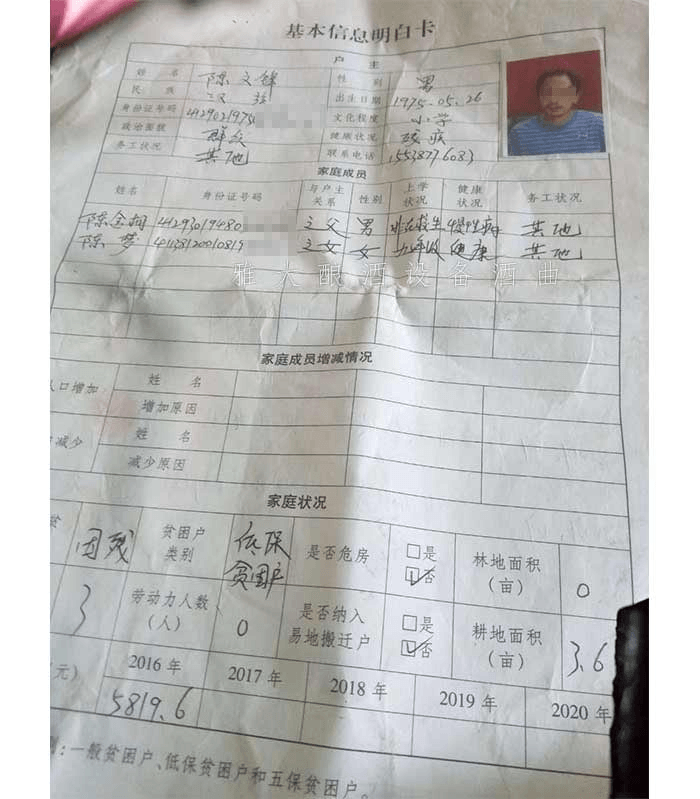 基本信息明白卡
户 主
姓 名 陈文锋 性 别 男
民 族 汉族 出生日期 1975.05.26
身份证号码 412902197 文化程度 小学
政治面貌 群众 健康状况 残疾
务工状况 其他 联系电话
家庭成员
姓名 身份证号码 与户主关系 性别 上学状况 健康状况 务工状况
41293019480 之父 男 非在校生 慢性病 其他
陈梦 41138120010819 之女 女 九年级 健康 其他
雅大酿酒设备酒曲
家庭成员增减情况
人口增加 姓 名
增加原因
减少 姓 名
减少原因
家庭状况
贫 因残 贫困户类别 低保贫困户 是否危房 □是 ☑否 林地面积（亩） 0
3 劳动力人数（人） 0 是否纳入易地搬迁户 □是 ☑否 耕地面积（亩） 3.6
元） 2016年 2017年 2018年 2019年 2020年
5819.6
别:一般贫困户、低保贫困户和五保贫困户。